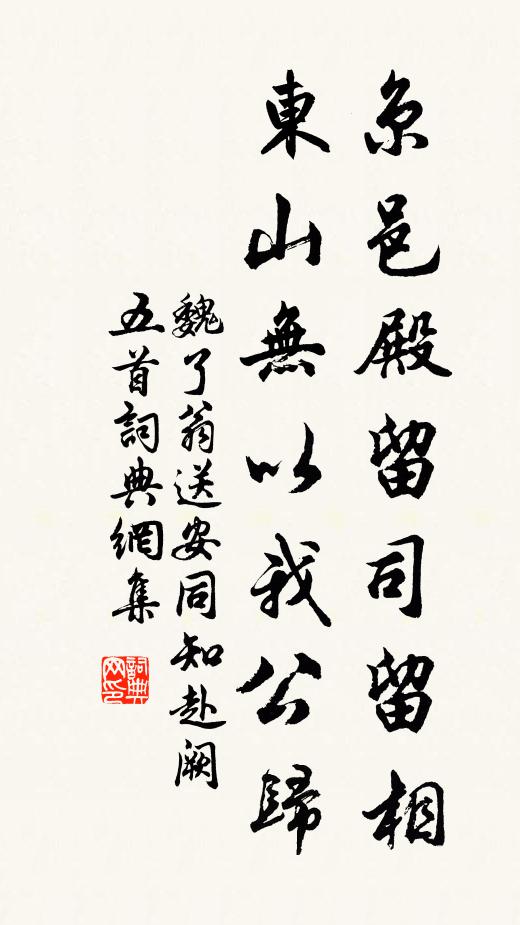 京邑殿留司留相
東山無以我公歸
魏了翁送安同知赴闕
五首詞典網集
詞典网印